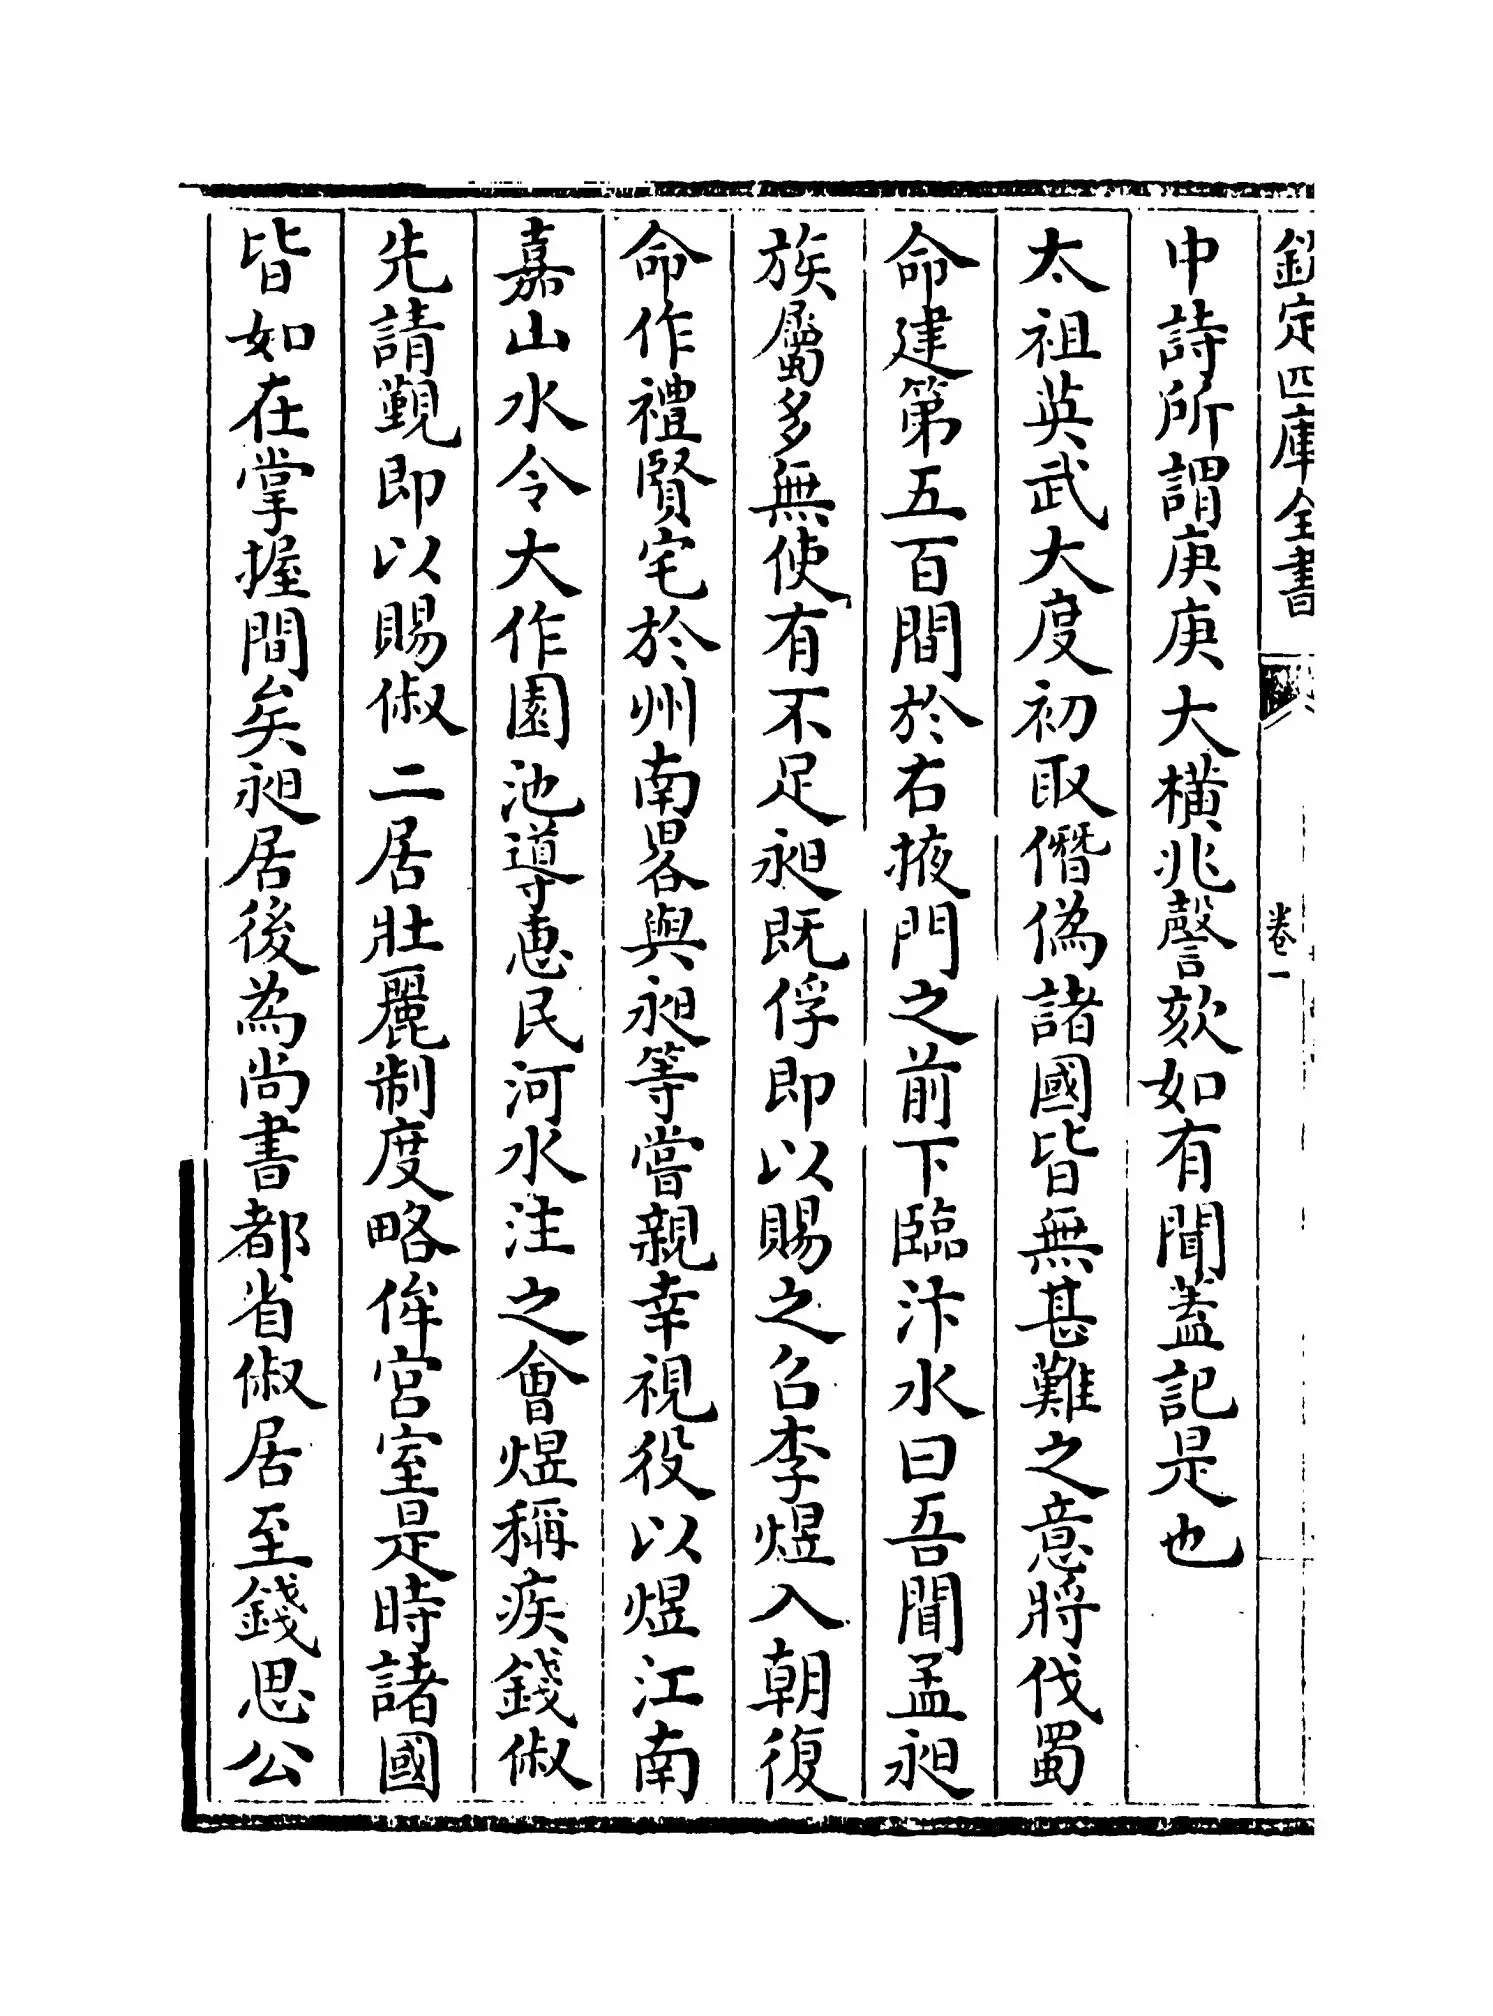 欽定四庫全書
卷一
中詩所謂庚庚大橫兆謦欬如有聞蓋記是也
太祖英武大度初取僭偽諸國皆無甚難之意將伐蜀
命建第五百間於右掖門之前下臨汴水曰吾聞孟昶
族屬多無使有不足昶既俘即以賜之召李煜入朝復
命作禮賢宅於州南畧與昶等嘗親幸視役以煜江南
嘉山水令大作園池導惠民河水注之會煜稱疾錢俶
先請覲即以賜俶二居壯麗制度略侔宮室是時諸國
皆如在掌握間矣昶居後為尚書都省俶居至錢思公